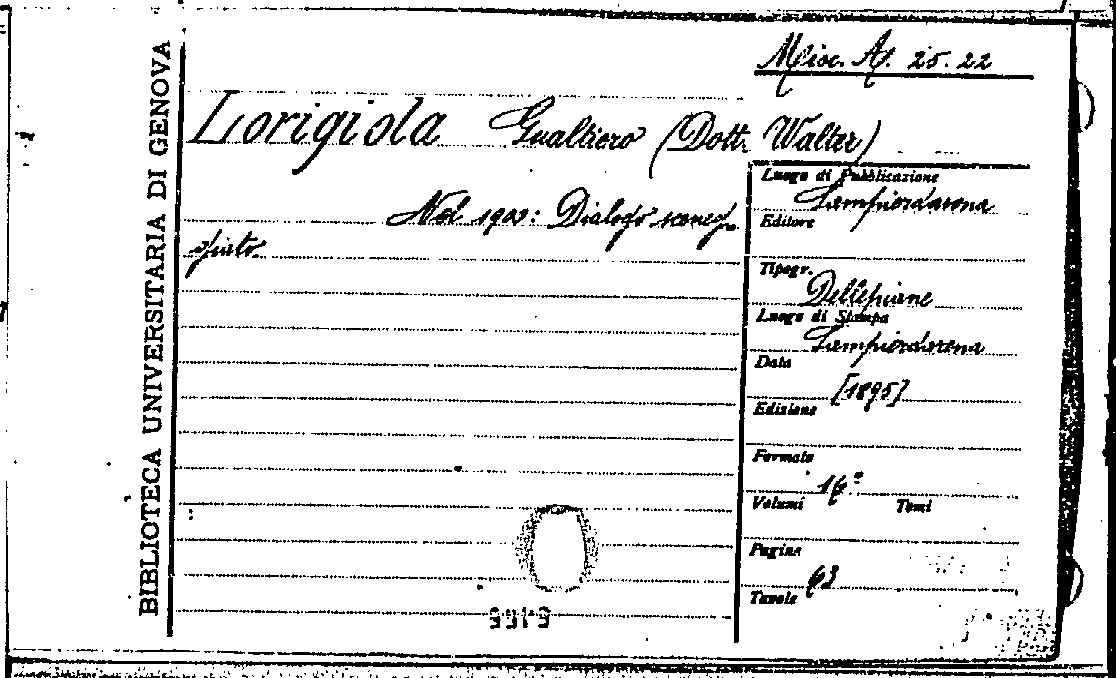 BIBLIOTECA UNIVERSITARIA DI GENOVA
Misc. A. 25. 22
Lorigiola Gualtiero (Dott. Walter)
Nel 1900: Dialogo sceneg-
giato.
Luogo di Pubblicazione
Sampierdarena
Editore
Tipogr.
Dellepiane
Luogo di Stampa
Sampierdarena
Data
[1895]
Edizione
Formato
16°
Volumi Tomi
Pagine
63
Tavole